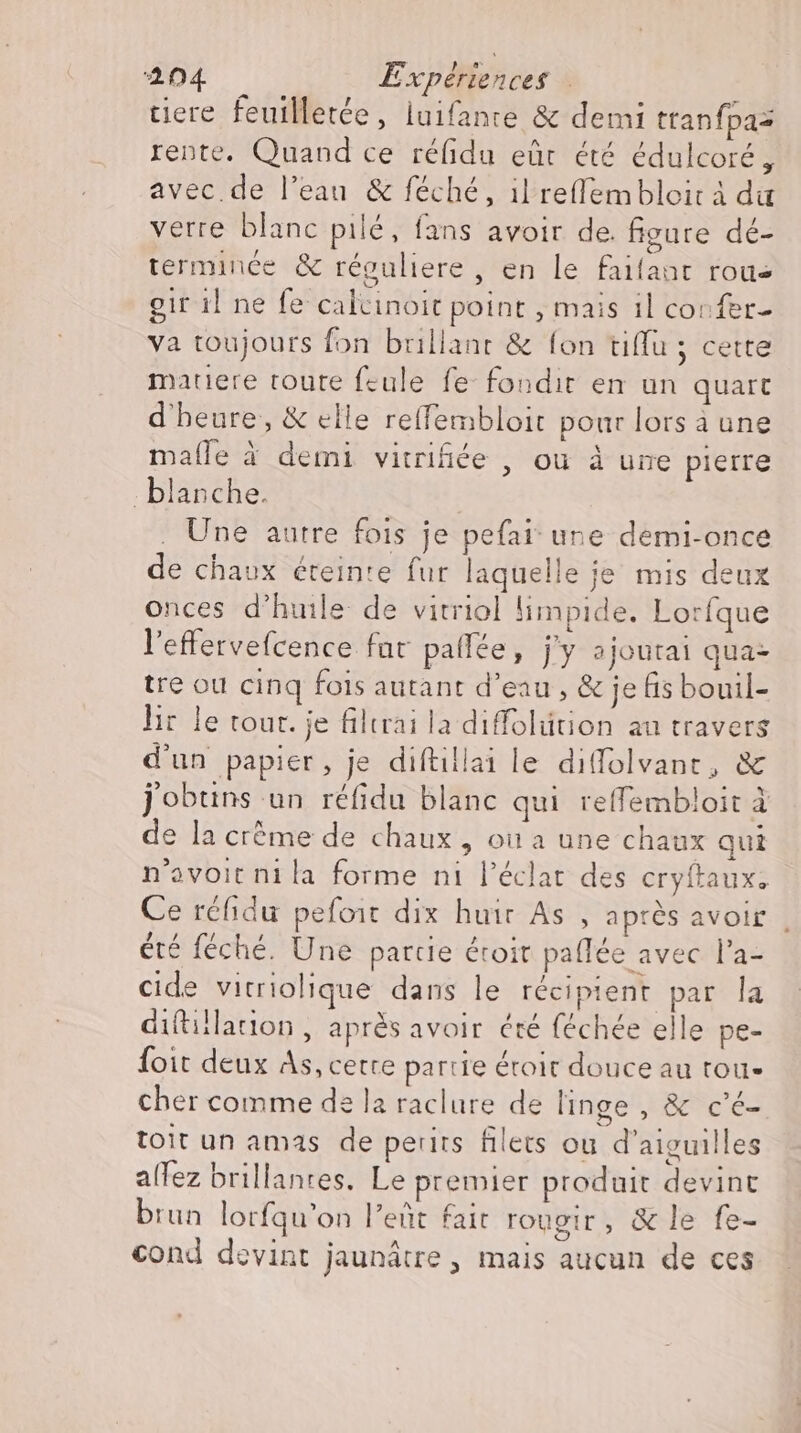 204 Expériences
tiere feuilletée, luiſante & demi tranſpa-
rente. Quand ce réſidu eût été édulcoré,
avec de l'eau & ſéché, il reſſembloit à du
verre blanc pilé, ſans avoir de figure dé-
terminée & réguliere, en le faiſant rou-
gir il ne ſe calcinoit point, mais il conſer-
va toujours ſon brillant & ſon tiſſu; cette
matiere toute ſeule ſe fondit en un quart
d'heure, & elle reſſembloit pour lors à une
maſſe à demi vitrifiée, ou à une pierre
blanche.
Une autre fois je peſai une demi-once
de chaux éteinte ſur laquelle je mis deux
onces d'huile de vitriol limpide. Lorſque
l'efferveſcence fut paſſée, j'y ajoutai qua-
tre ou cinq fois autant d'eau, & je fis bouil-
lir le tout. je filtrai la diſſolution au travers
d'un papier, je diſtillai le diſſolvant, &
j'obtins un réſidu blanc qui reſſembloit à
de la crême de chaux, ou a une chaux qui
n'avoit ni la forme ni l'éclat des cryſtaux.
Ce réſidu peſoit dix huit As, après avoir
été ſéché. Une partie étoit paſſée avec l'a-
cide vitriolique dans le récipient par la
diſtillation, après avoir été ſéchée elle pe-
ſoit deux As, cette partie étoit douce au tou-
cher comme de la raclure de linge, & c'é-
toit un amas de petits filets ou d'aiguilles
aſſez brillantes. Le premier produit devint
brun lorſqu'on l'eût fait rougir, & le ſe-
cond devint jaunâtre, mais aucun de ces